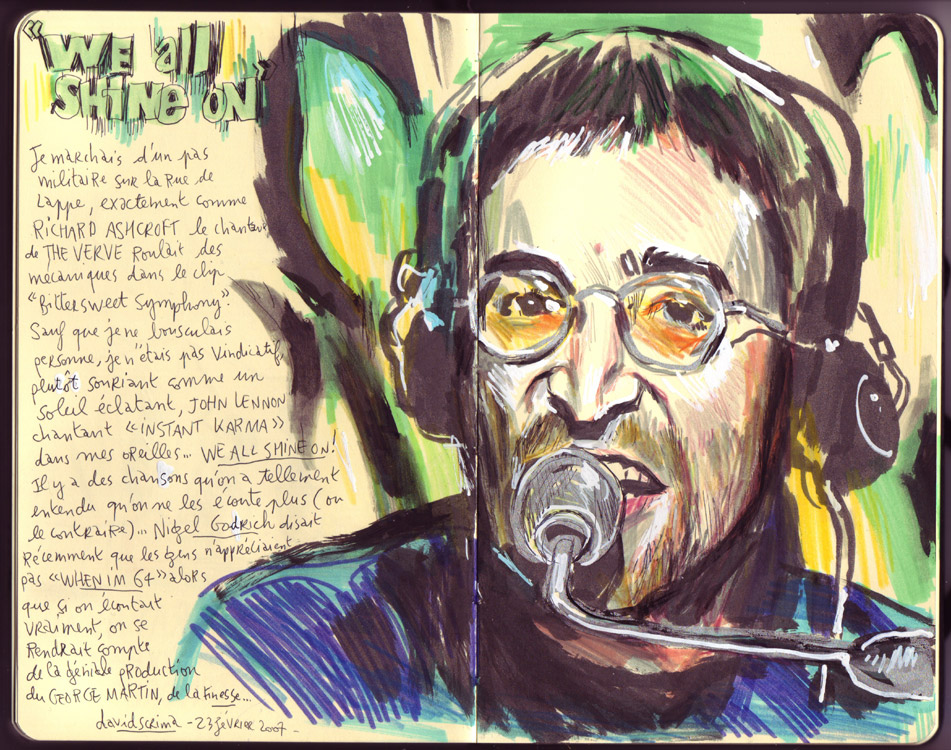 "WE all
SHINE ON"
Je marchais d'un pas
militaire sur la Rue de
Lappe, exactement comme
RICHARD ASHCROFT le chanteur
de THE VERVE Roulait des
mécaniques dans le clip
"Bittersweet Symphony".
Sauf que je ne bousculais
personne, je n'étais pas vindicatif,
plutôt souriant comme un
soleil éclatant, JOHN LENNON
chantant «INSTANT KARMA»
dans mes oreilles... WE ALL SHINE ON!
Il y a des chansons qu'on a tellement
entendu qu'on ne les écoute plus (ou
le contraire)... Nigel Godrich disait
Récemment que les gens n'appréciaient
pas «WHEN I'M 64» alors
que si on écoutait
vraiment, on se
Rendrait compte
de la géniale production
du GEORGE MARTIN, de la finesse...
davidscrima - 23 février 2007 -